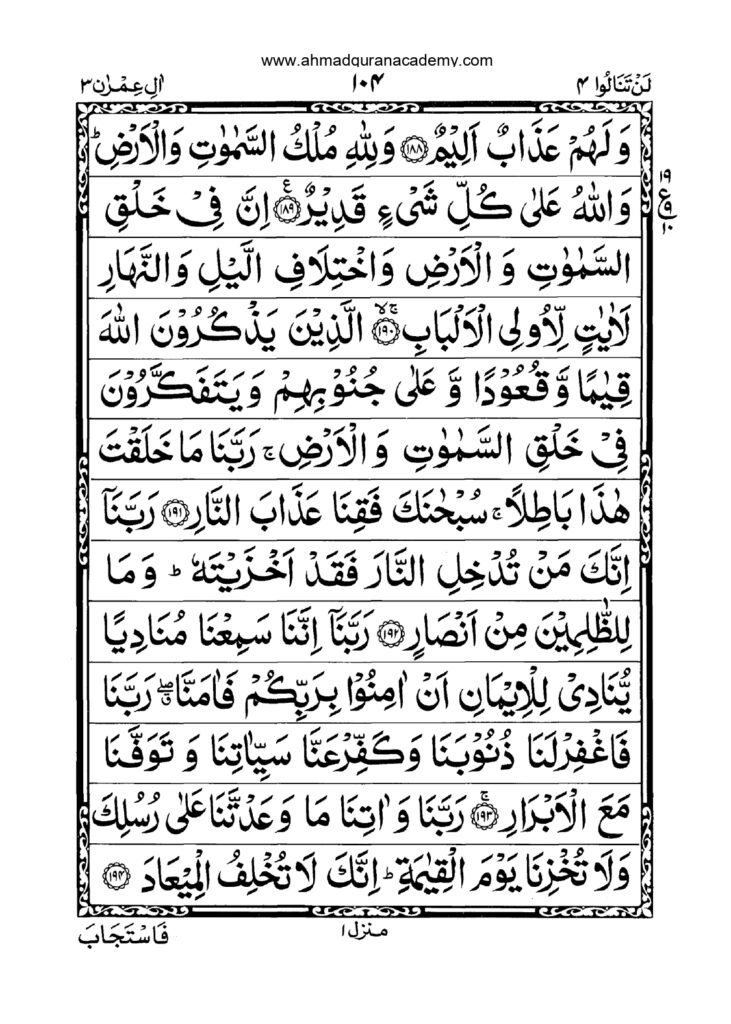 www.ahmadquranacademy.com
لَنْ تَنَالُوا ۴ ۱۰۴ اٰلِ عِمْرٰن ۳
وَ لَهُمْ عَذَابٌ اَلِيْمٌ ۝۱۸۸ وَلِلّٰهِ مُلْكُ السَّمٰوٰتِ وَالْاَرْضِ ؕ
وَاللّٰهُ عَلٰى كُلِّ شَىْءٍ قَدِيْرٌ ۝۱۸۹ ع اِنَّ فِىْ خَلْقِ
۱۹
ع ۹
۱۰
السَّمٰوٰتِ وَ الْاَرْضِ وَاخْتِلَافِ الَّيْلِ وَالنَّهَارِ
لَاٰيٰتٍ لِّاُولِى الْاَلْبَابِ ۝۱۹۰ ۚۙ الَّذِيْنَ يَذْكُرُوْنَ اللّٰهَ
قِيٰمًا وَّ قُعُوْدًا وَّ عَلٰى جُنُوْبِهِمْ وَيَتَفَكَّرُوْنَ
فِىْ خَلْقِ السَّمٰوٰتِ وَ الْاَرْضِ ۚ رَبَّنَا مَا خَلَقْتَ
هٰذَا بَاطِلًا ۚ سُبْحٰنَكَ فَقِنَا عَذَابَ النَّارِ ۝۱۹۱ رَبَّنَاۤ
اِنَّكَ مَنْ تُدْخِلِ النَّارَ فَقَدْ اَخْزَيْتَهٗ ؕ وَ مَا
لِلظّٰلِمِيْنَ مِنْ اَنْصَارٍ ۝۱۹۲ رَبَّنَاۤ اِنَّنَا سَمِعْنَا مُنَادِيًا
يُّنَادِىْ لِلْاِيْمَانِ اَنْ اٰمِنُوْا بِرَبِّكُمْ فَاٰمَنَّا ۖۗ رَبَّنَا
فَاغْفِرْلَنَا ذُنُوْبَنَا وَكَفِّرْعَنَّا سَيِّاٰتِنَا وَ تَوَفَّنَا
مَعَ الْاَبْرَارِ ۝۱۹۳ ۚ رَبَّنَا وَ اٰتِنَا مَا وَعَدْتَّنَا عَلٰى رُسُلِكَ
وَلَا تُخْزِنَا يَوْمَ الْقِيٰمَةِ ؕ اِنَّكَ لَا تُخْلِفُ الْمِيْعَادَ ۝۱۹۴
منزل ۱
فَاسْتَجَابَ